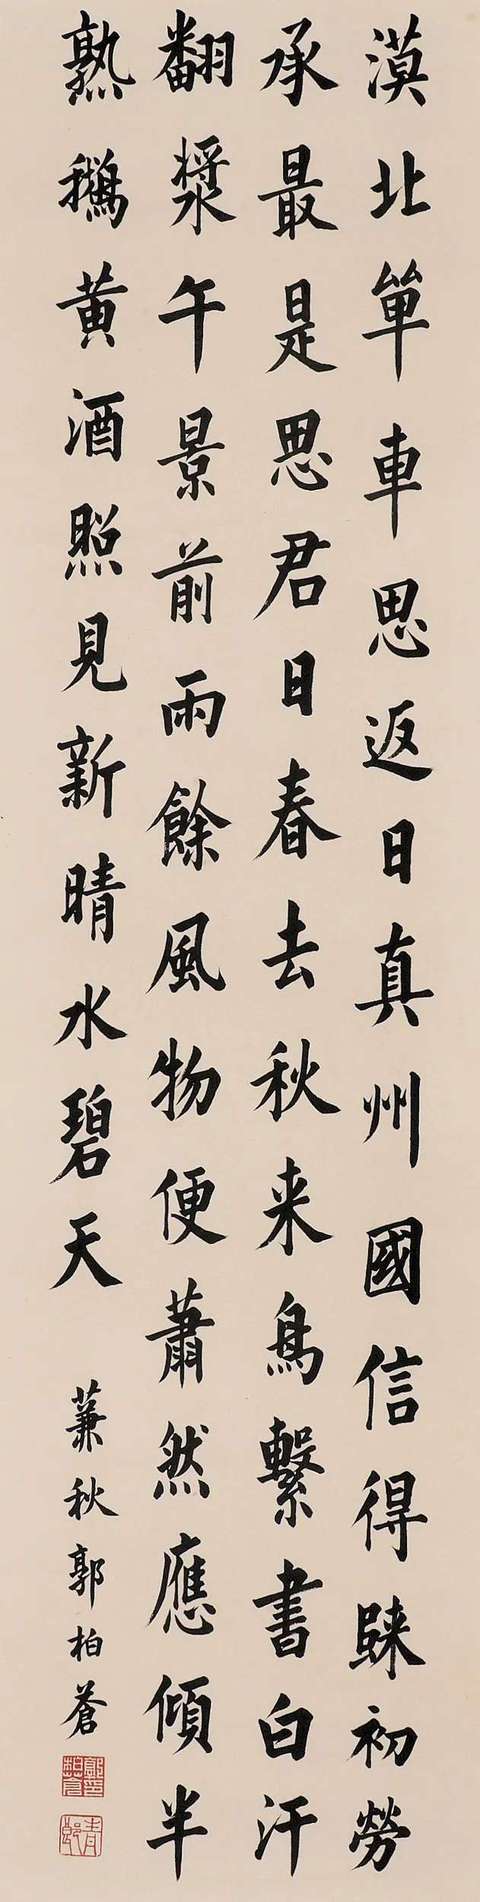 漠北單車思返日真州國信得歸初勞
承最是思君日春去秋来鳥繫書白汗
翻漿午景前雨餘風物便蕭然應傾半
熟鵝黃酒照見新晴水碧天
蒹秋郭柏蒼